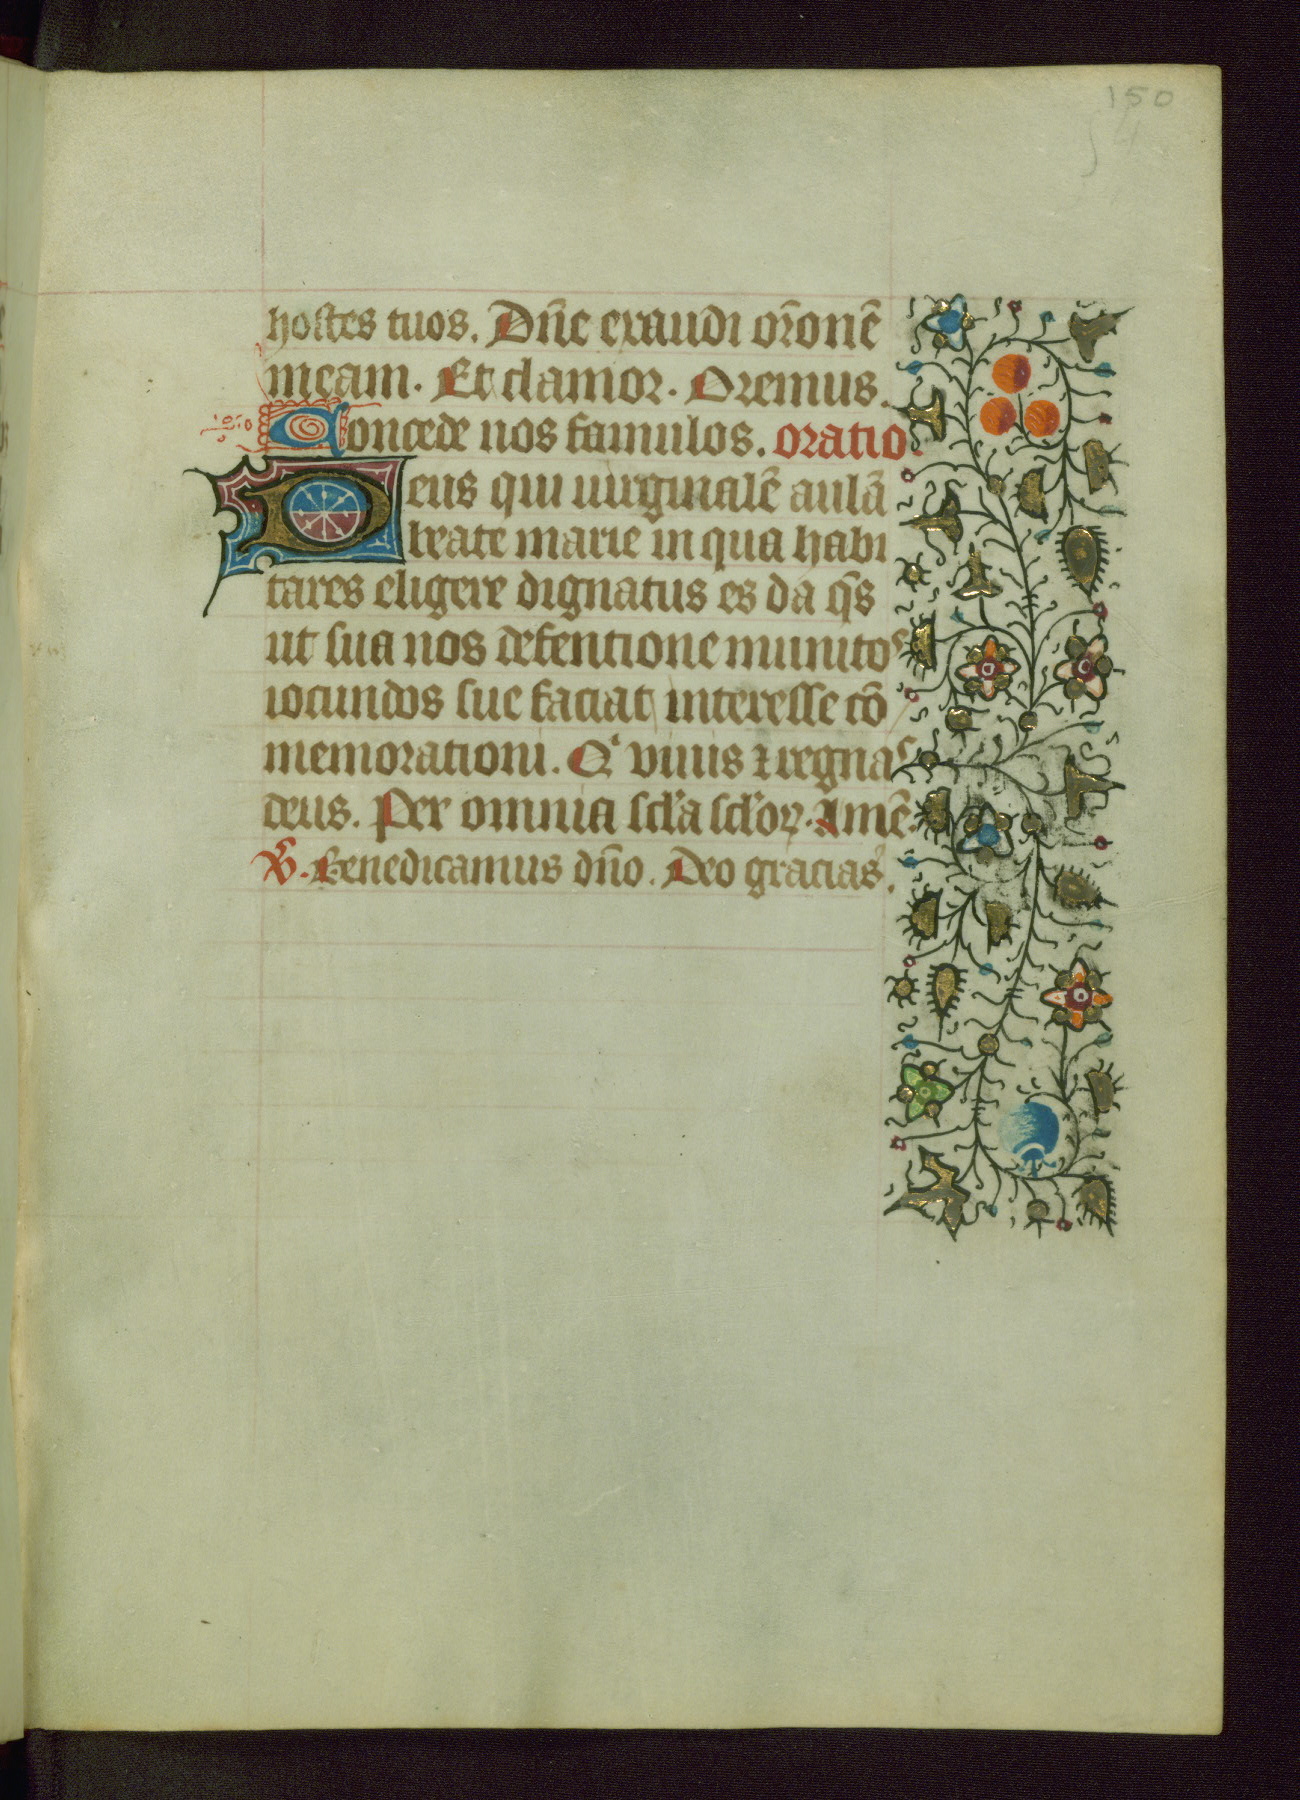 150
4
hostes tuos. Dn̄e exaudi or̄onē
meam. Et clamor. Oremus.
Concede nos famulos. oratio.
Deus qui uirginalē aulā
beate marie in qua habi
tares eligere dignatus es da q̄s
ut sua nos defentione munitos
iocundos sue faciat interesse cō
memorationi. Qͥ viuis ⁊ regnas
deus. Per omnia scl̓a scl̓oꝝ. Amē.
V̄. Benedicamus dn̄o. Deo gracias.